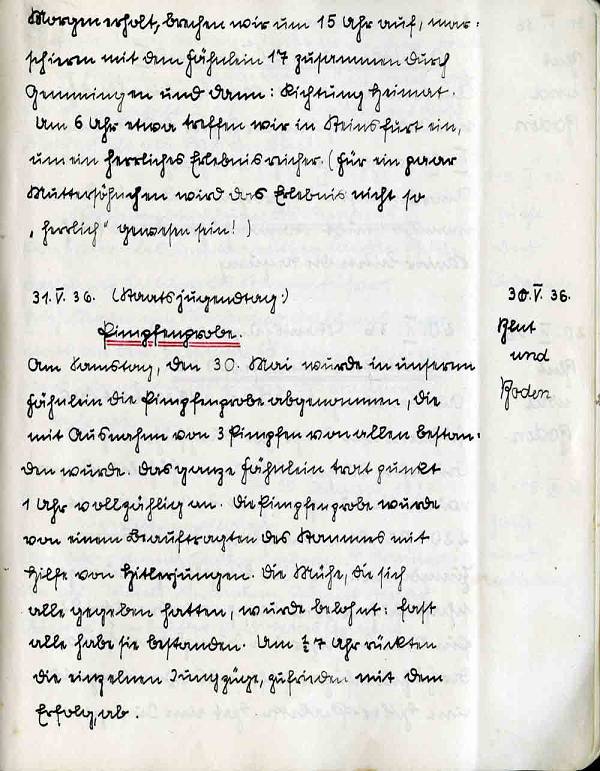 Morgen erholt, brechen wir um 15 Uhr auf, mar=
schieren mit dem Fähnlein 17 zusammen durch
Gemmingen und dann: Richtung Heimat.
Um 6 Uhr etwa treffen wir in Steinsfurt ein,
um ein herrliches Erlebnis reicher. (Für ein paar
Muttersöhnchen wird das Erlebnis nicht so
„herrlich" gewesen sein!)
31.V.36. (Staatsjugendtag.)
Pimpfenprobe.
Am Samstag, den 30. Mai wurde in unserem
Fähnlein die Pimpfenprobe abgenommen, die
mit Ausnahme von 3 Pimpfen von allen bestan=
den wurde. Das ganze Fähnlein trat punkt
1 Uhr vollzählig an. Die Pimpfenprobe wurde
von einem Beauftragten des Stammes mit
Hilfe von Hitlerjungen. Die Mühe, die sich
alle gegeben hatten, wurde belohnt: fast
alle habe sie bestanden. Um ½ 7 Uhr rückten
die einzelnen Jungzüge, zufrieden mit dem
Erfolg, ab.
30.V.36.
Blut
und
Boden